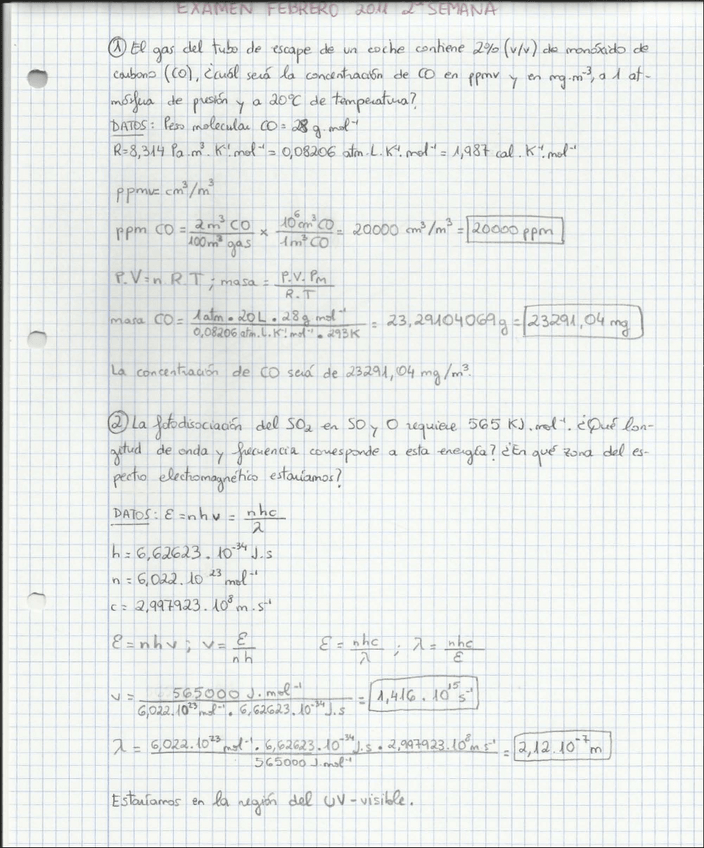 EXAMEN FEBRERO 2011 2ª SEMANA
① El gas del tubo de escape de un coche contiene 2% (v/v) de monóxido de
carbono (CO), ¿cuál será la concentración de CO en ppmv y en mg·m⁻³, a 1 at-
mósfera de presión y a 20°C de temperatura?
DATOS: Peso molecular CO = 28 g·mol⁻¹
R=8,314 Pa·m³·K⁻¹·mol⁻¹ = 0,08206 atm·L·K⁻¹·mol⁻¹ = 1,987 cal·K⁻¹·mol⁻¹
ppmv = cm³/m³
ppm CO = 2m³ CO / 100m³ gas × 10⁶ cm³ CO / 1m³ CO = 20000 cm³/m³ = 20000 ppm
P.V=n.R.T ; masa = P.V.Pm / R.T
masa CO = 1 atm · 20L · 28 g mol⁻¹ / 0,08206 atm.L.K⁻¹.mol⁻¹ · 293K = 23,29104069 g = 23291,04 mg
La concentración de CO será de 23291,04 mg/m³.
② La fotodisociación del SO₂ en SO y O requiere 565 KJ.mol⁻¹. ¿Qué lon-
gitud de onda y frecuencia corresponde a esta energía? ¿En qué zona del es-
pectro electromagnético estaríamos?
DATOS: E = nhν = nhc / λ
h = 6,62623·10⁻³⁴ J.s
n = 6,022·10²³ mol⁻¹
c = 2,997923·10⁸ m·s⁻¹
E = nhν ; ν = E / nh E = nhc / λ ; λ = nhc / E
ν = 565000 J.mol⁻¹ / 6,022·10²³ mol⁻¹ · 6,62623·10⁻³⁴ J.s = 1,416·10¹⁵ s⁻¹
λ = 6,022·10²³ mol⁻¹ · 6,62623·10⁻³⁴ J.s · 2,997923·10⁸ m s⁻¹ / 565000 J mol⁻¹ = 2,12·10⁻⁷ m
Estaríamos en la región del UV-visible.